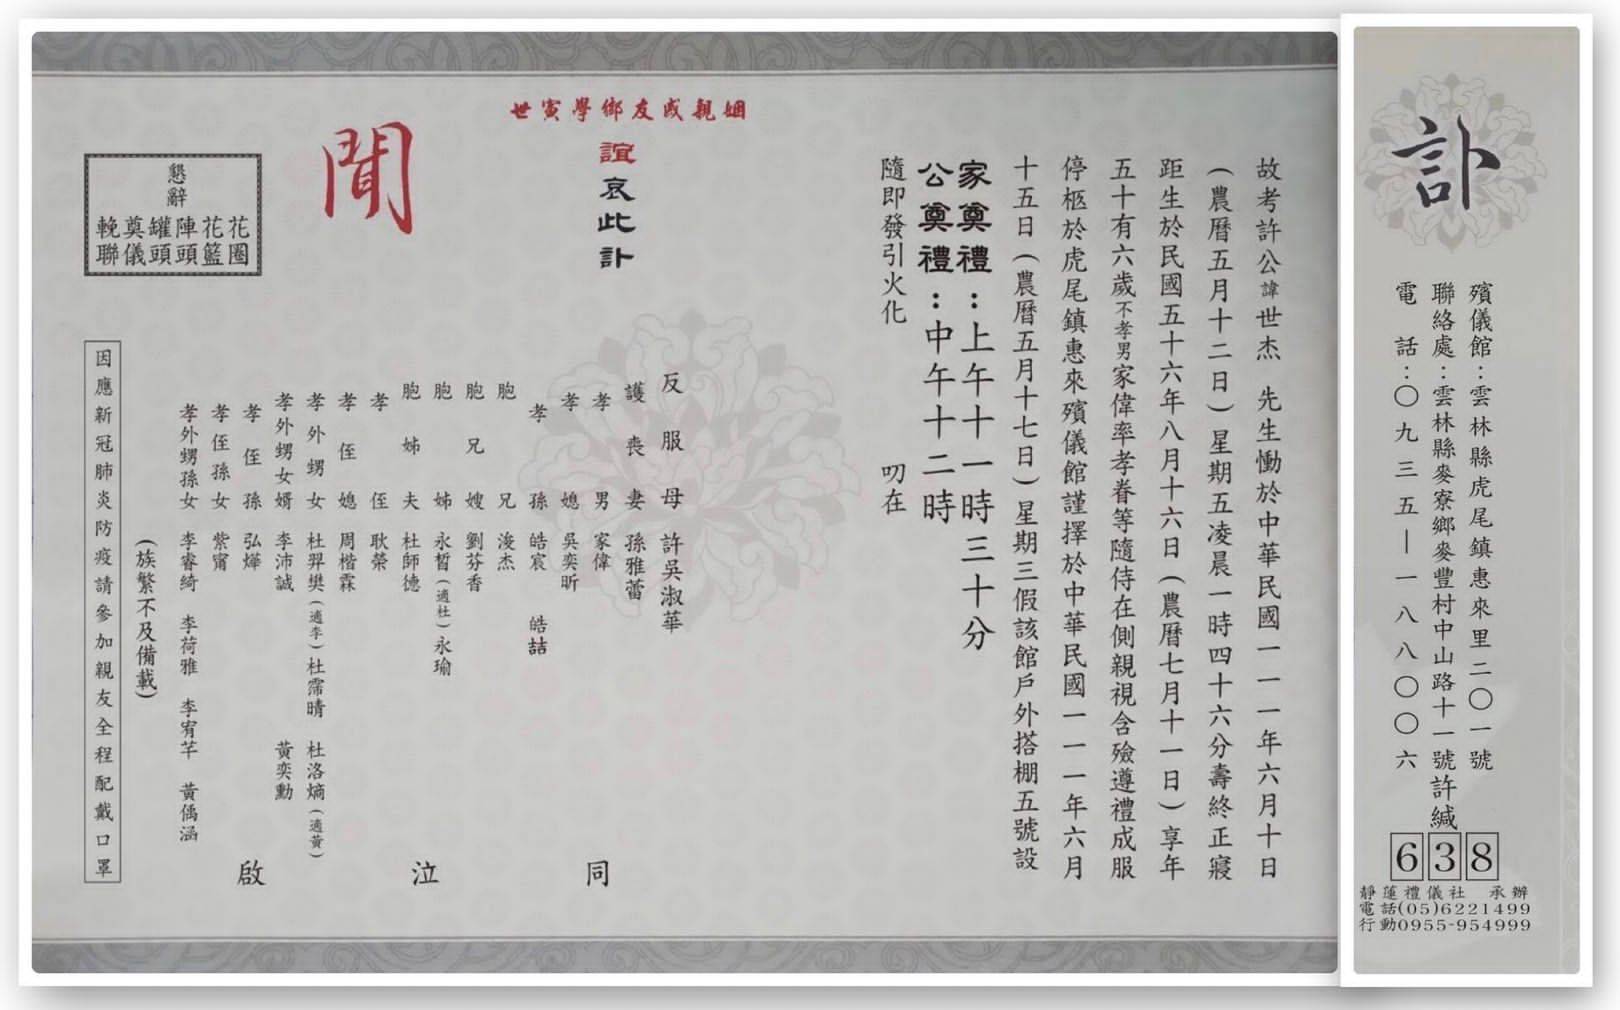 訃
殯儀館：雲林縣虎尾鎮惠來里二〇一號
聯絡處：雲林縣麥寮鄉麥豐村中山路十一號許緘
電話：〇九三五－一八八〇〇六
638
靜蓮禮儀社 承辦
電話(05)6221499
行動0955-954999
故考許公諱世杰 先生慟於中華民國一一一年六月十日
(農曆五月十二日)星期五凌晨一時四十六分壽終正寢
距生於民國五十六年八月十六日(農曆七月十一日)享年
五十有六歲不孝男家偉率孝眷等隨侍在側親視含殮遵禮成服
停柩於虎尾鎮惠來殯儀館謹擇於中華民國一一一年六月
十五日(農曆五月十七日)星期三假該館戶外搭棚五號設
家奠禮：上午十一時三十分
公奠禮：中午十二時
隨即發引火化 叨在
世寅學鄉友戚親姻
誼哀此訃
聞
反服母 許吳淑華
護喪妻 孫雅蕾
孝男 家偉
孝媳 吳奕昕
孝孫 皓宸 皓喆
胞兄 浚杰
胞兄嫂 劉芬香
胞姊 永晢(適杜)永瑜
胞姊夫 杜師德
孝侄 耿榮
孝侄媳 周楷霖
孝外甥女 杜羿樊(適李)杜霈晴 杜洛熵(適黃)
孝外甥女婿 李沛誠 黃奕勳
孝侄孫 弘燁
孝侄孫女 紫甯
孝外甥孫女 李睿綺 李荷雅 李宥芊 黃偊涵
同泣啟
(族繁不及備載)
懇辭
花圈 花籃 陣頭 罐頭 奠儀 輓聯
因應新冠肺炎防疫請參加親友全程配戴口罩